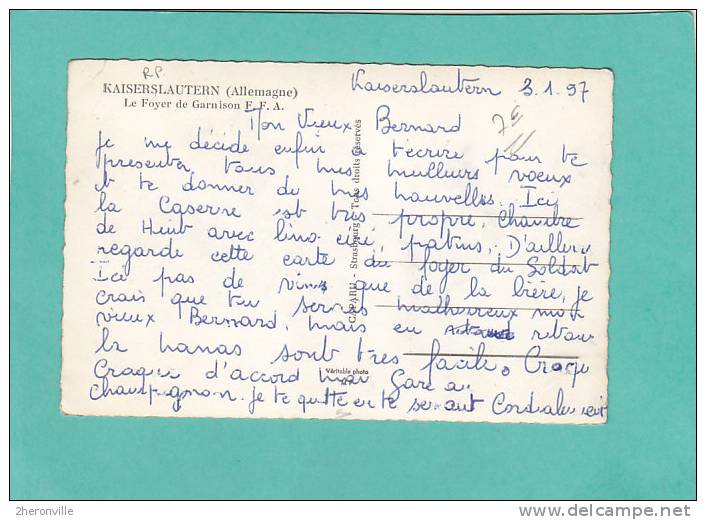 RP
KAISERSLAUTERN (Allemagne)
Le Foyer de Garnison F. F. A.
Kaiserslautern 3.1.57
Mon Vieux Bernard
7€
Je me décide enfin à t'écrire pour te
presenter tous mes meilleurs voeux
et te donner de mes nouvelles. Ici,
la Caserne est très propre, chambre
de Huit avec lino ciré, patins. D'ailleurs
regarde cette carte du foyer du Soldat
Ici pas de vins que de la bière, je
crois que tu serais malheureux mon
vieux Bernard, mais en retour
la nanas sont très facile. Croqu
Craque d'accord mai Gare a
Champignon. Je te quitte en te serrant Cordialement
CAPARH - Strasbourg - Tous droits réservés
Véritable photo
2heronville
www.delcampe.net